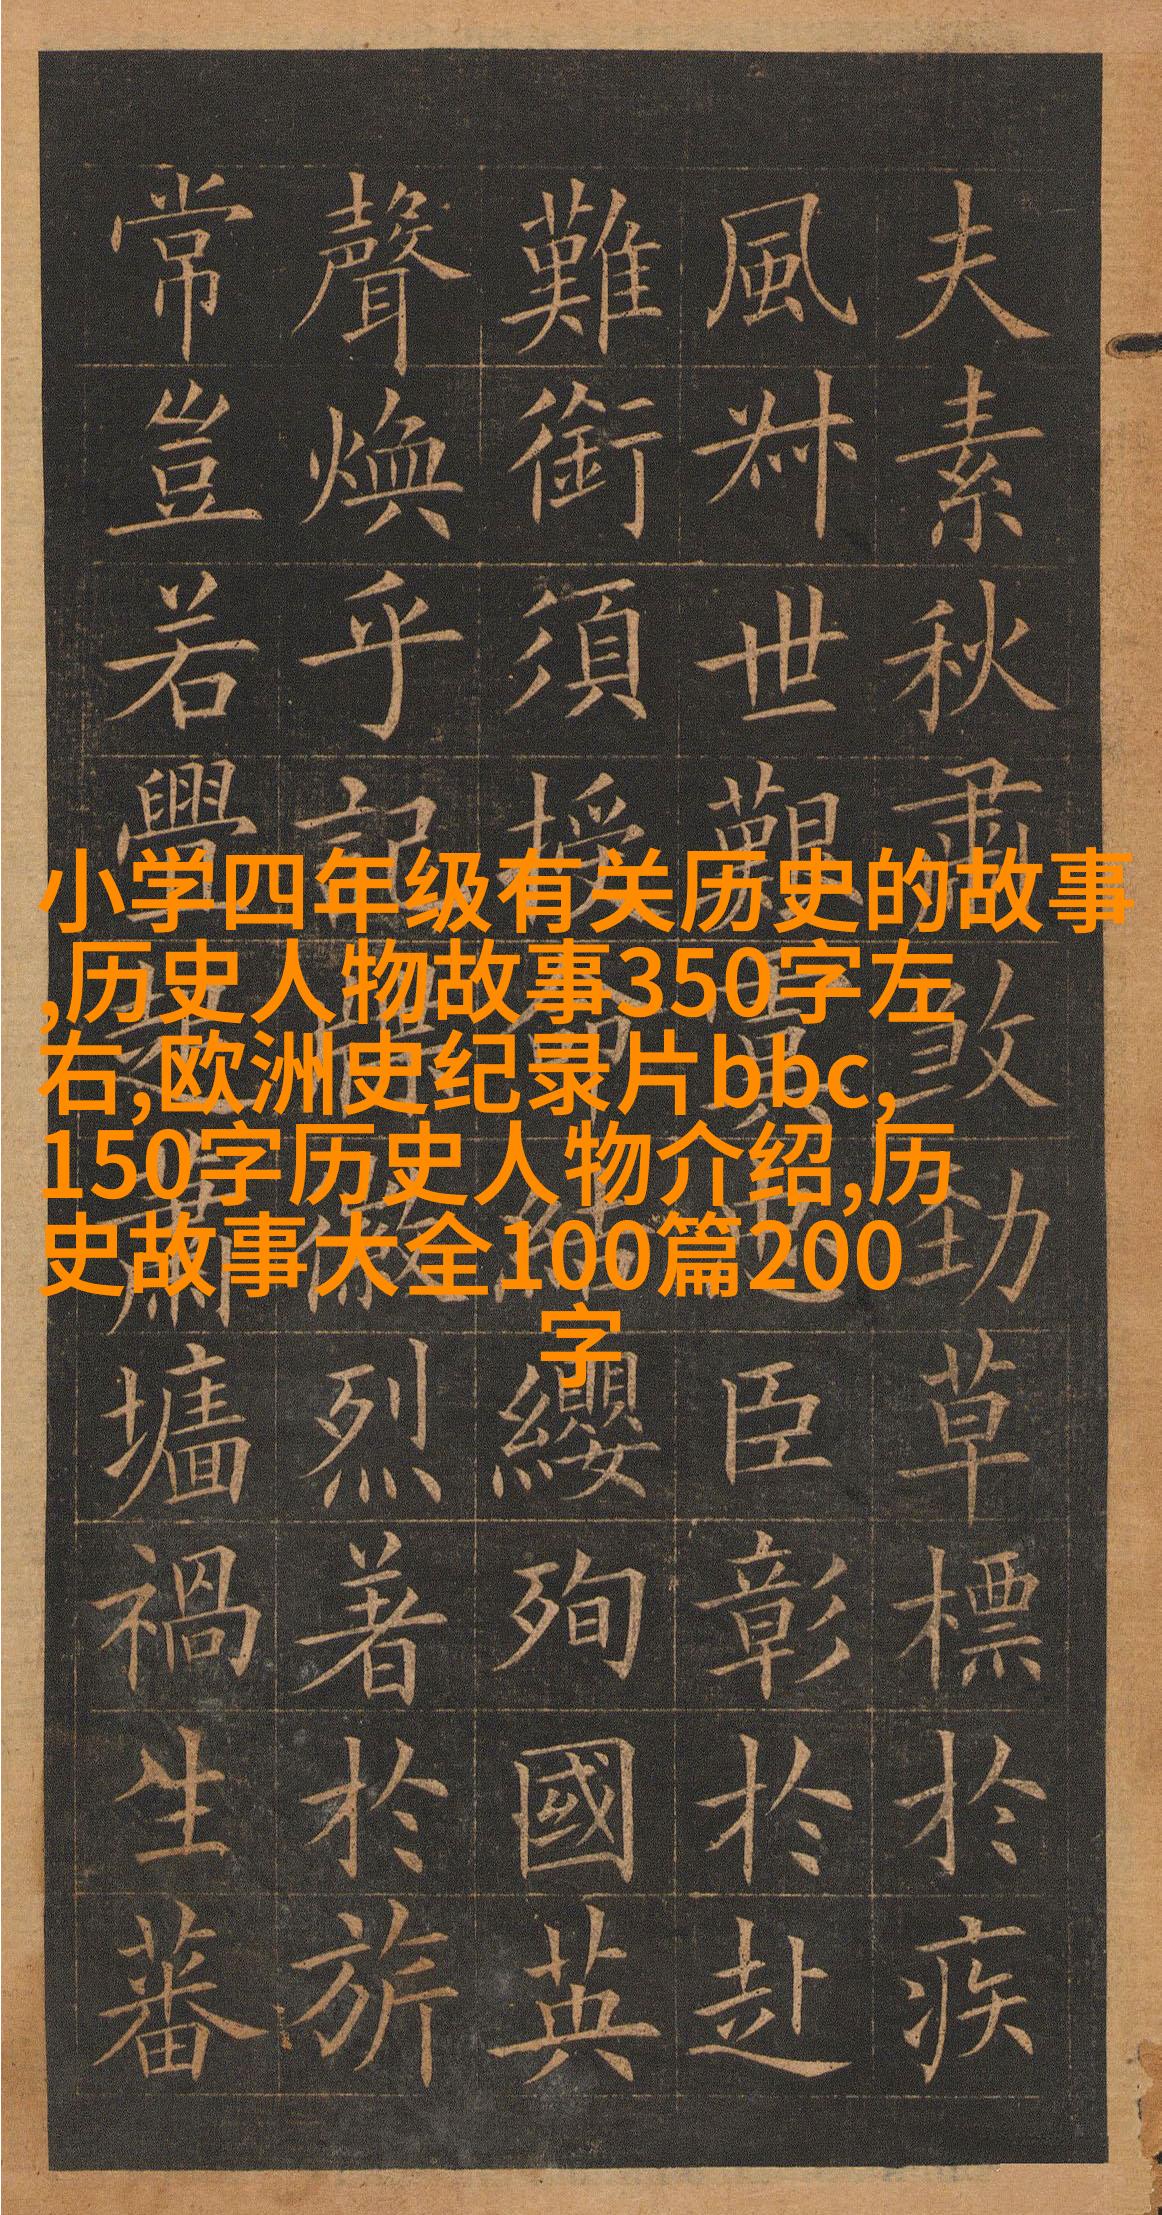 小学四年级有关历史的故事
,历史人物故事350字左
右,欧洲史纪录片bbc,
150字历史人物介绍,历
史故事大全100篇200
字
夫素秋肅敢勁草標於疾
風叔世艱臣彰於赴
難銜須授命結纓殉國英
聲煥乎記牒徽烈著於旂
常豈若釁起蕭墻禍生蕃